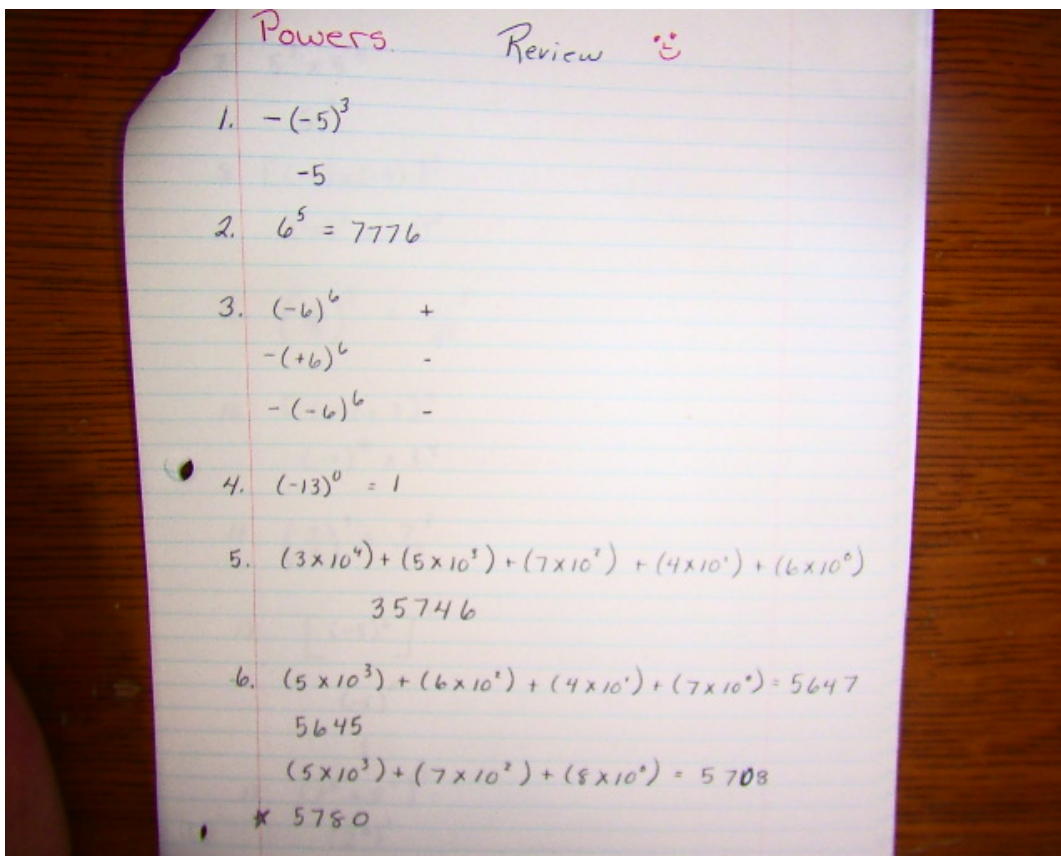 Powers. Review
1. -(-5)³
-5
2. 6⁵ = 7776
3. (-6)⁶ +
-(+6)⁶ -
-(-6)⁶ -
4. (-13)⁰ = 1
5. (3x10⁴) + (5x10³) + (7x10²) + (4x10¹) + (6x10⁰)
35746
6. (5x10³) + (6x10²) + (4x10¹) + (7x10⁰) = 5647
5645
(5x10³) + (7x10²) + (8x10⁰) = 5708
* 5780